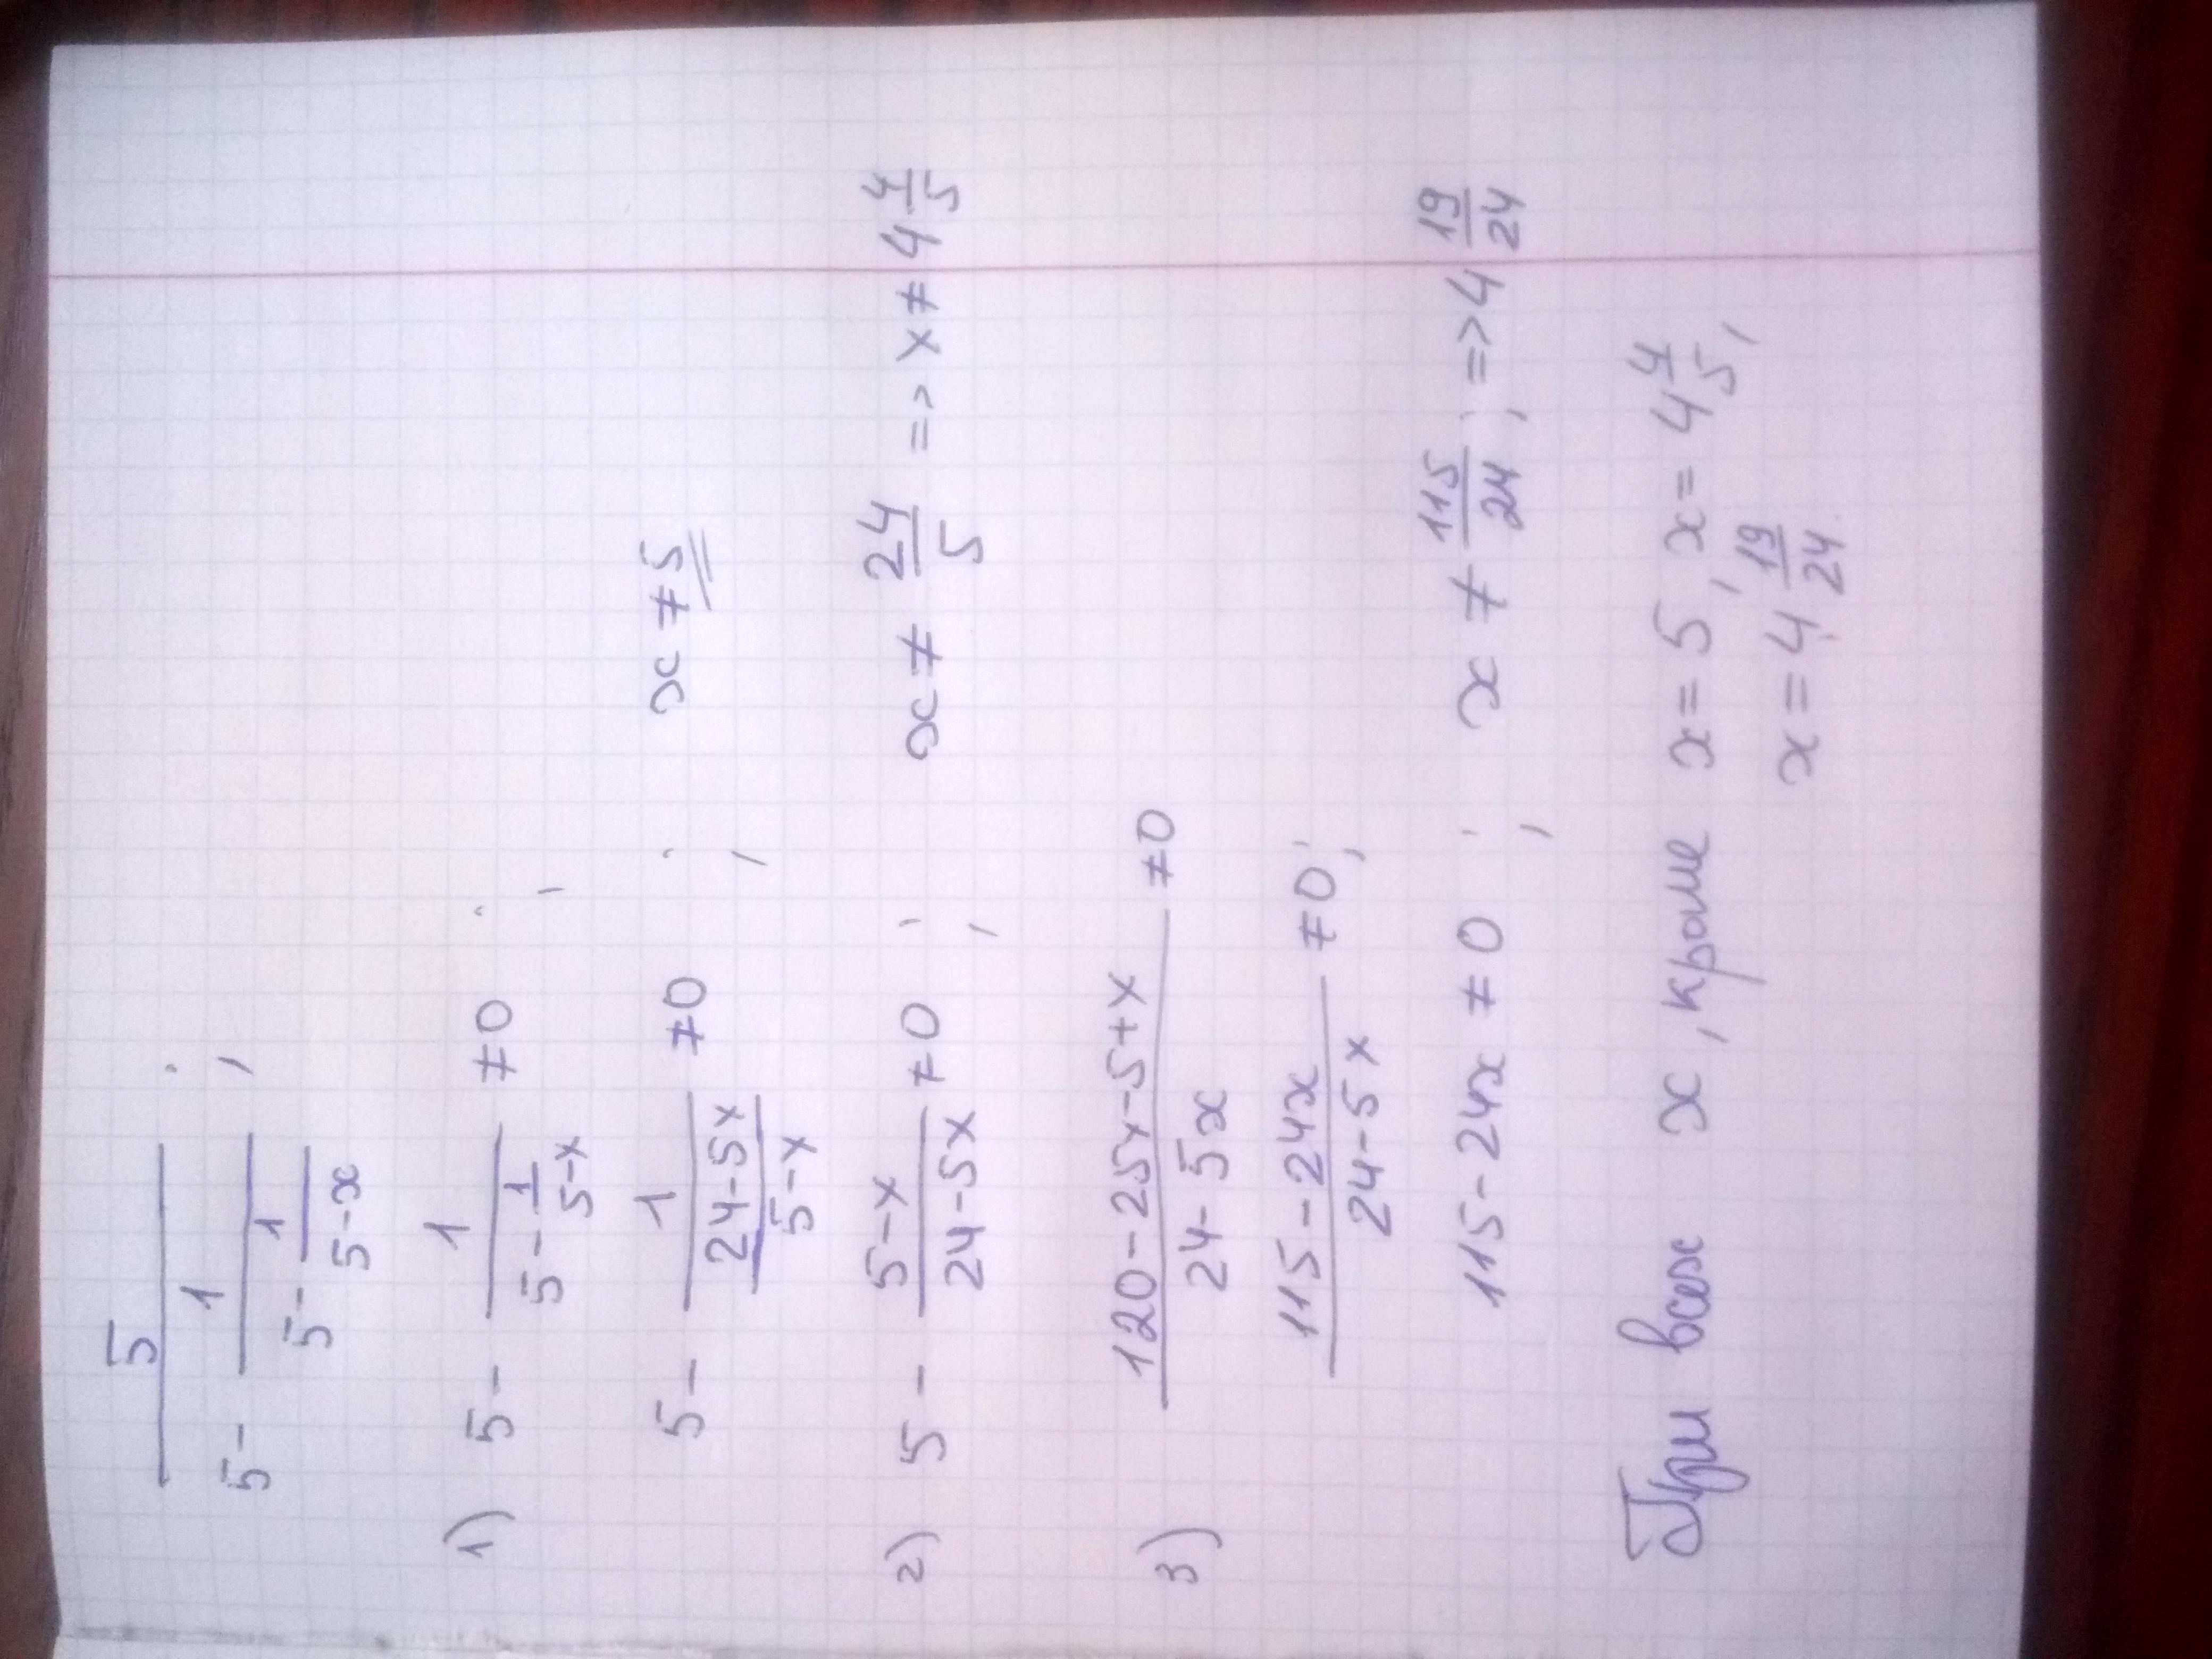 5/(5 - 1/(5 - 1/(5-x))) ;
1) 5 - 1/(5 - 1/(5-x)) ≠ 0 ;
5 - 1/((24-5x)/(5-x)) ≠ 0 ; x ≠ 5
2) 5 - (5-x)/(24-5x) ≠ 0 ; x ≠ 24/5 => x ≠ 4 4/5
3) (120-25x-5+x)/(24-5x) ≠ 0
(115-24x)/(24-5x) ≠ 0 ;
115-24x ≠ 0 ; x ≠ 115/24 ; => 4 19/24
При всех x, кроме x = 5, x = 4 4/5,
x = 4 19/24